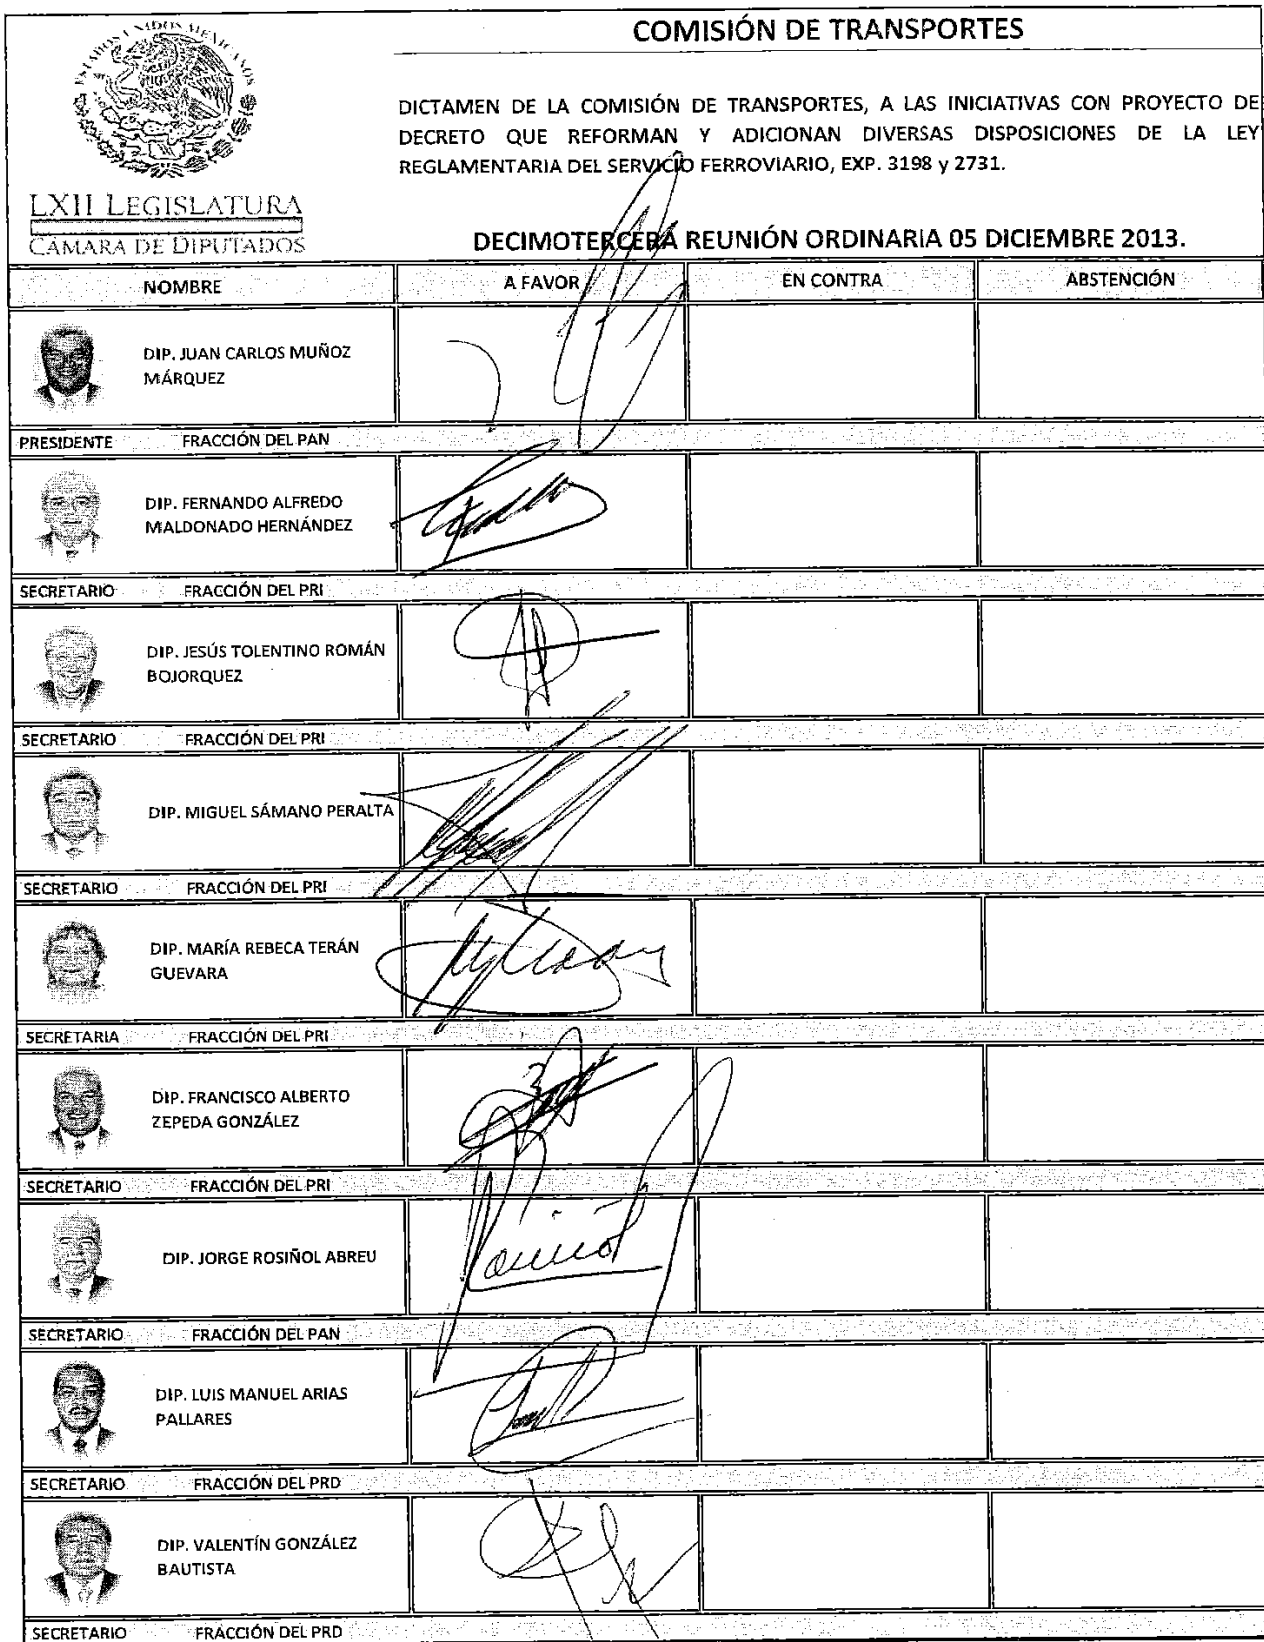 ESTADOS UNIDOS MEXICANOS
LXII LEGISLATURA
CÁMARA DE DIPUTADOS
COMISIÓN DE TRANSPORTES
DICTAMEN DE LA COMISIÓN DE TRANSPORTES, A LAS INICIATIVAS CON PROYECTO DE
DECRETO QUE REFORMAN Y ADICIONAN DIVERSAS DISPOSICIONES DE LA LEY
REGLAMENTARIA DEL SERVICIO FERROVIARIO, EXP. 3198 y 2731.
DECIMOTERCERA REUNIÓN ORDINARIA 05 DICIEMBRE 2013.
NOMBRE A FAVOR EN CONTRA ABSTENCIÓN
DIP. JUAN CARLOS MUÑOZ
MÁRQUEZ
PRESIDENTE FRACCIÓN DEL PAN
DIP. FERNANDO ALFREDO
MALDONADO HERNÁNDEZ
SECRETARIO FRACCIÓN DEL PRI
DIP. JESÚS TOLENTINO ROMÁN
BOJORQUEZ
SECRETARIO FRACCIÓN DEL PRI
DIP. MIGUEL SÁMANO PERALTA
SECRETARIO FRACCIÓN DEL PRI
DIP. MARÍA REBECA TERÁN
GUEVARA
SECRETARIA FRACCIÓN DEL PRI
DIP. FRANCISCO ALBERTO
ZEPEDA GONZÁLEZ
SECRETARIO FRACCIÓN DEL PRI
DIP. JORGE ROSIÑOL ABREU
SECRETARIO FRACCIÓN DEL PAN
DIP. LUIS MANUEL ARIAS
PALLARES
SECRETARIO FRACCIÓN DEL PRD
DIP. VALENTÍN GONZÁLEZ
BAUTISTA
SECRETARIO FRACCIÓN DEL PRD